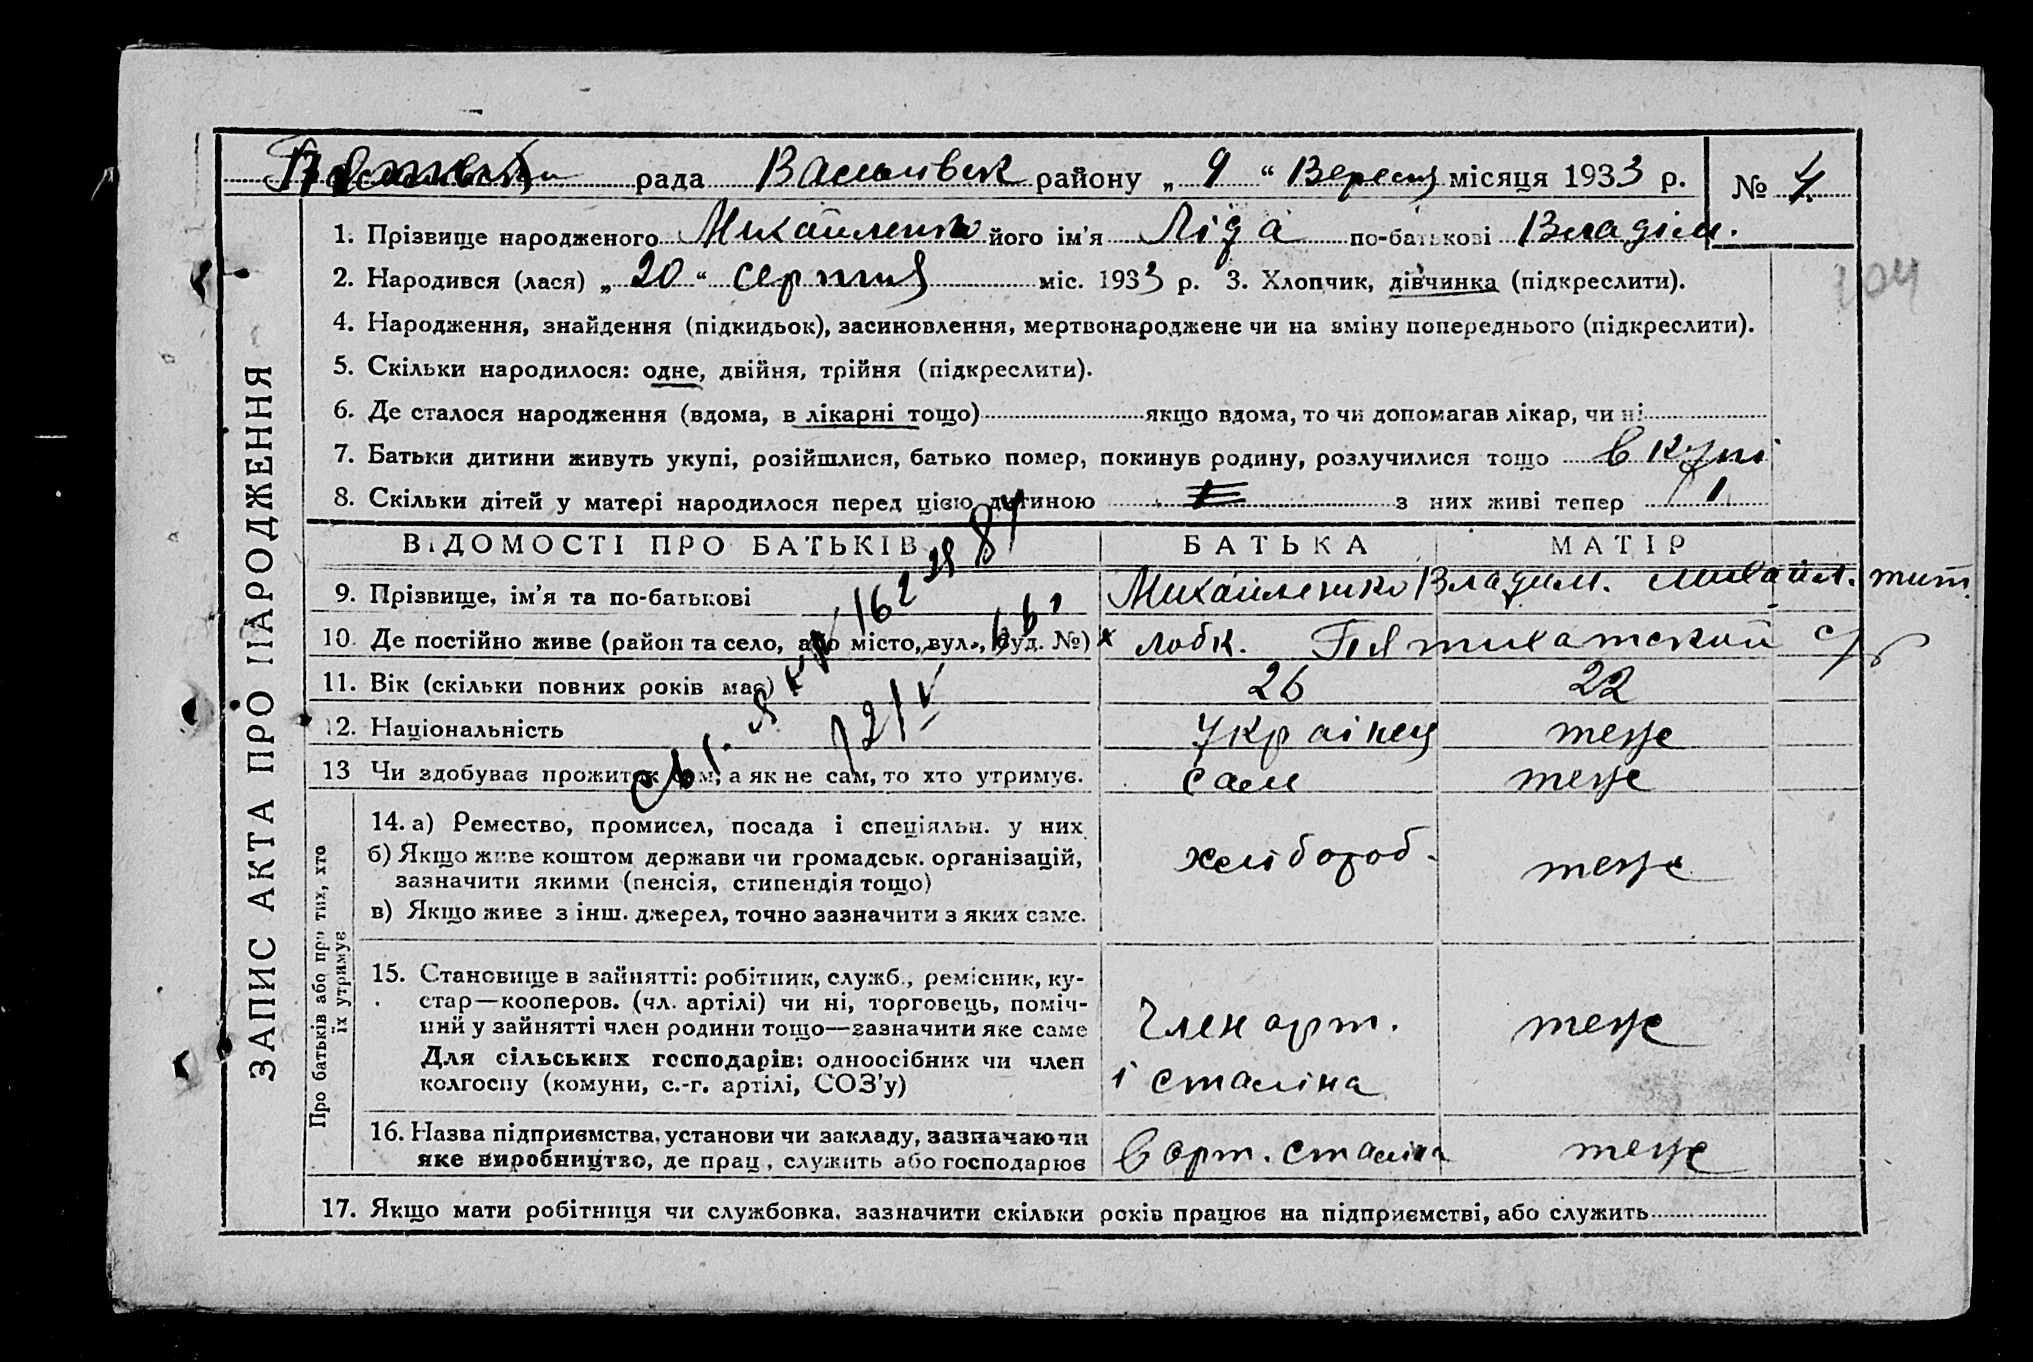 рада Васильівськ району „ 9 “ Вересня місяця 1933 р. № 4
104
ЗАПИС АКТА ПРО НАРОДЖЕННЯ
1. Прізвище народженого Михайленко його ім'я Ліда по-батькові Владім.
2. Народився (лася) „ 20 “ серпня міс. 1933 р. 3. Хлопчик, дівчинка (підкреслити).
4. Народження, знайдення (підкидьок), засиновлення, мертвонароджене чи на зміну попереднього (підкреслити).
5. Скільки народилося: одне, двійня, трійня (підкреслити).
6. Де сталося народження (вдома, в лікарні тощо) якщо вдома, то чи допомагав лікар, чи ні
7. Батьки дитини живуть укупі, розійшлися, батько помер, покинув родину, розлучилися тощо в купі
8. Скільки дітей у матері народилося перед цією дитиною з них живі тепер 1
ВІДОМОСТІ ПРО БАТЬКІВ БАТЬКА МАТІР
9. Прізвище, ім'я та по-батькові Михайленко Владим. михайл.
10. Де постійно живе (район та село, або місто, вул., буд. №) х лобк. Пятихатской с/р
11. Вік (скільки повних років має) 26 22
12. Національність Украінец теже
13 Чи здобуває прожиток сам, а як не сам, то хто утримує. сам теже
Про батьків або про тих, хто
їх утримує
14. а) Ремество, промисел, посада і спеціяльн. у них
б) Якщо живе коштом держави чи громадськ. організацій,
зазначити якими (пенсія, стипендія тощо)
хлібороб. теже
в) Якщо живе з інш. джерел, точно зазначити з яких саме.
15. Становище в зайнятті: робітник, служб., ремісник, ку-
стар—кооперов. (чл. артілі) чи ні, торговець, поміч-
ний у зайнятті член родини тощо—зазначити яке саме
Член арт. теже
Для сільських господарів: одноосібник чи член
колгоспу (комуни, с.-г. артілі, СОЗ'у)
і сталіна
16. Назва підприємства, установи чи закладу, зазначаючи
яке виробництво, де прац., служить або господарює
в арт. сталіна теже
17. Якщо мати робітниця чи службовка, зазначити скільки років працює на підприємстві, або служить